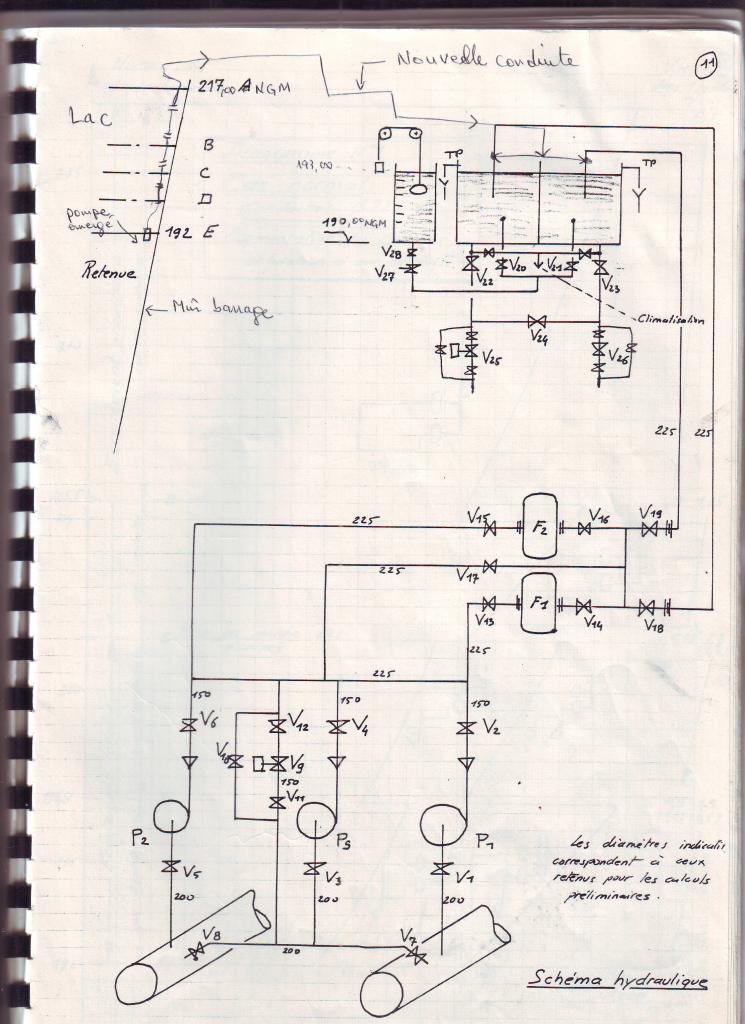 11
Nouvelle conduite
217,00 A NGM
Lac
B
C
D
192 E
Retenue
Mur barrage
193,00
190,00 NGM
TP
TP
V28
V27
V22
V20
V21
V23
Climatisation
V24
V25
V26
225
225
V15
F2
V16
V19
225
V17
225
V13
F1
V14
V18
225
225
150
150
150
V6
V12
V4
V2
V10
V9
150
V11
P2
PS
P1
V5
V3
V1
200
200
200
V8
V7
200
Les diamètres indicatifs
correspondent à ceux
retenus pour les calculs
préliminaires.
Schéma hydraulique